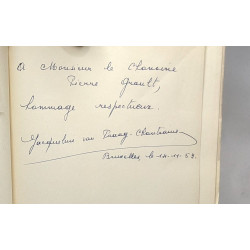 A Monsieur le Chanoine
Pierre Grault,
hommage respectueux.
Jacqueline van Praag-Chantraine
Bruxelles, le 14.11.58.